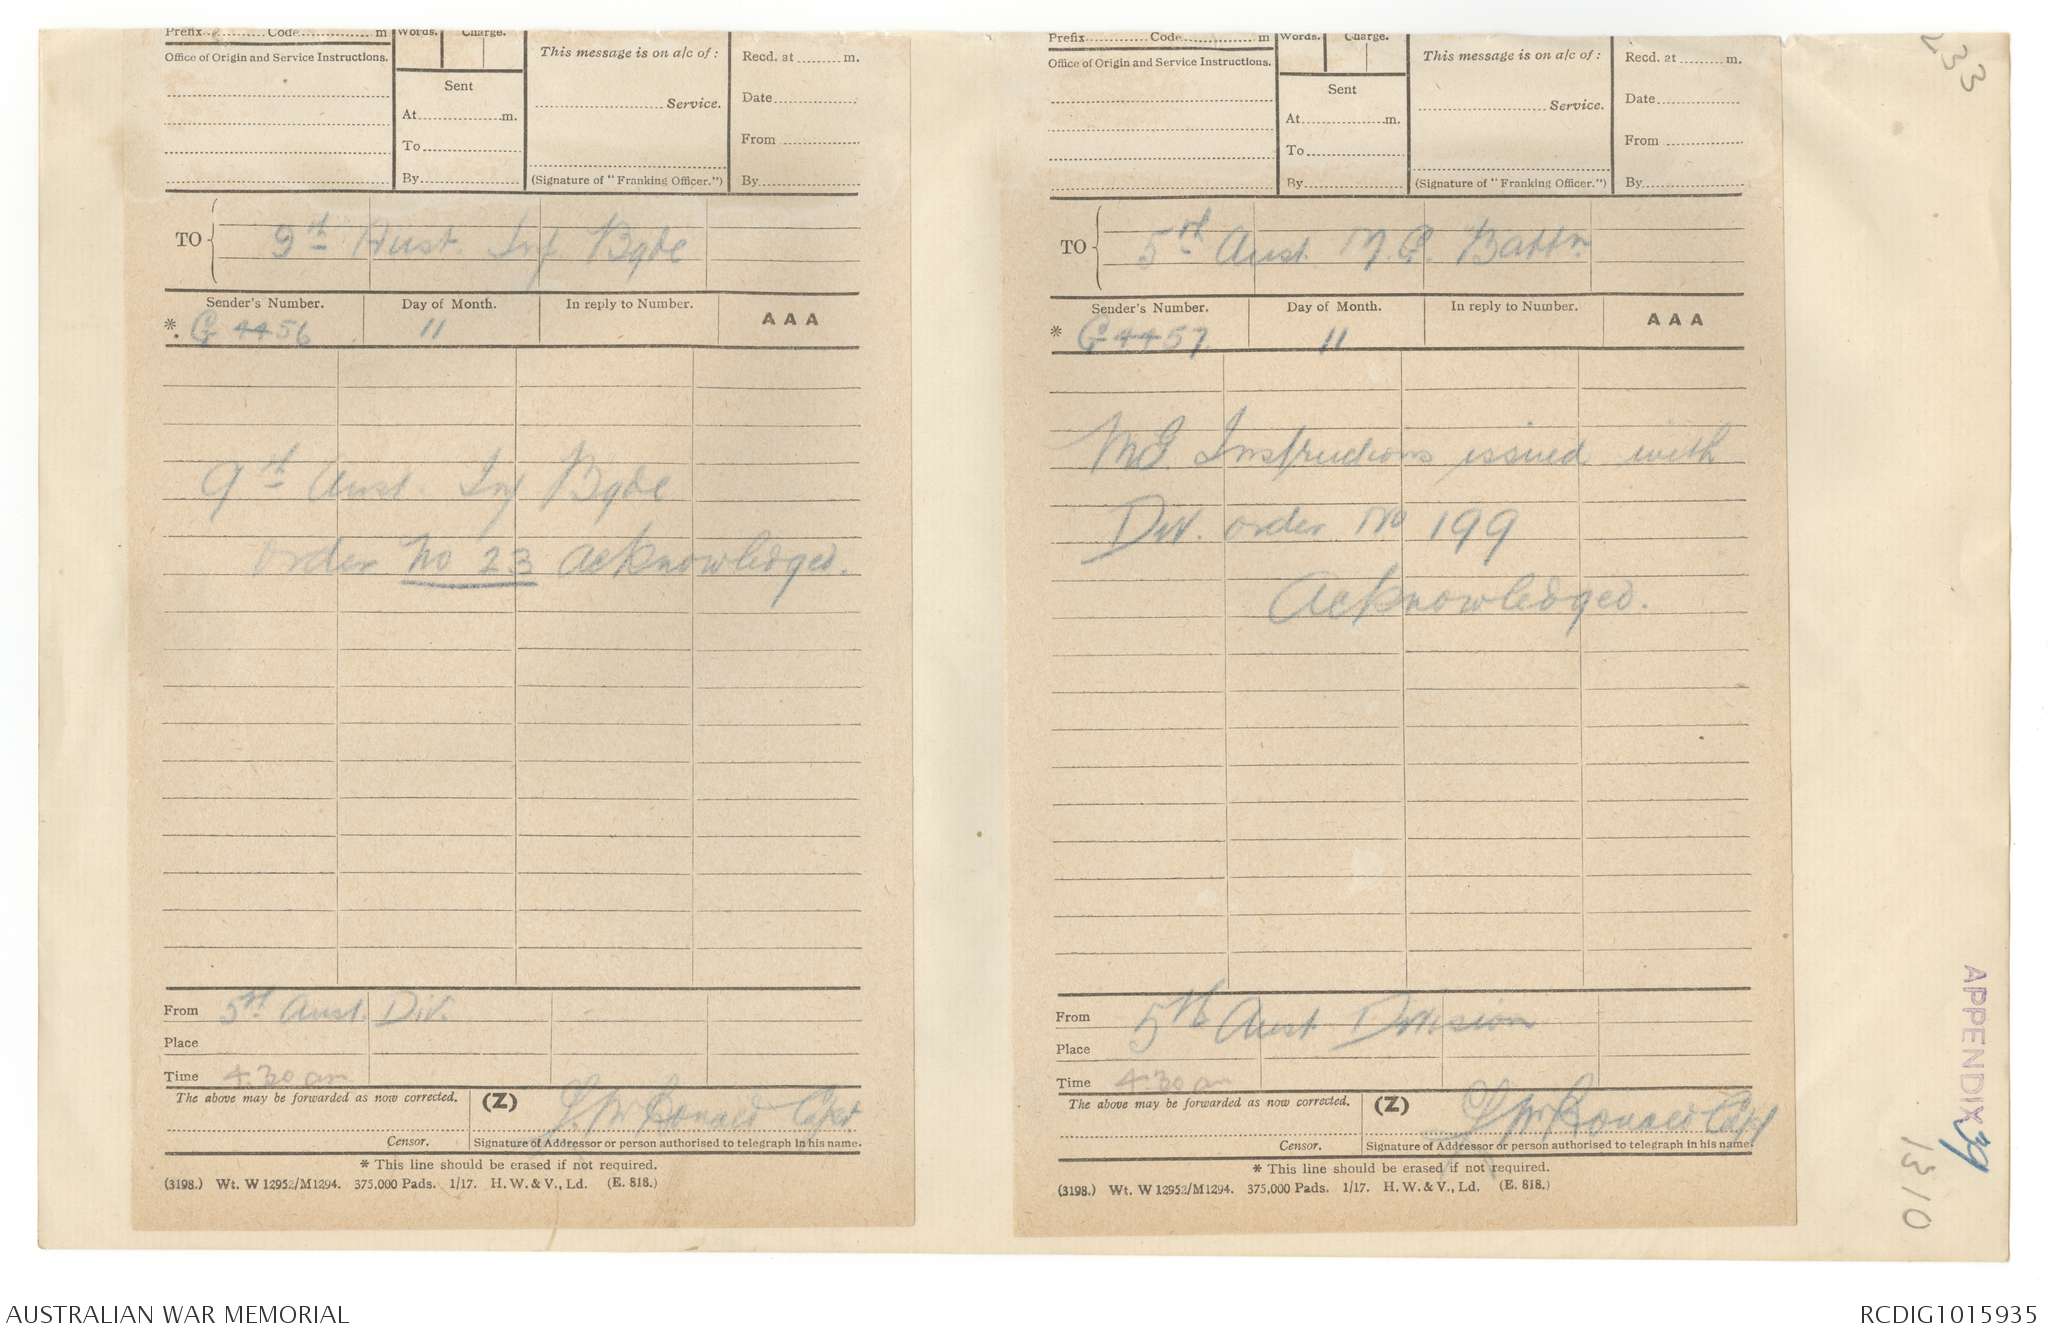 Prefix..........Code..............m
Words.
Charge.
Office of Origin and Service Instructions.
Sent
At..............m.
To..............
By..............
This message is on a/c of:
..............Service.
(Signature of "Franking Officer.")
Recd. at..........m.
Date..............
From..............
By..............
TO
9th Aust. Inf Bgde
Sender's Number.
Day of Month.
In reply to Number.
AAA
* G 4456
11
9th Aust. Inf Bgde
order No 23 acknowledged.
From 5th Aust. Div.
Place
Time 4.30 am
The above may be forwarded as now corrected.
(Z)
Capt
Censor.
Signature of Addressor or person authorised to telegraph in his name.
* This line should be erased if not required.
(3198.) Wt. W 12952/M1294. 375,000 Pads. 1/17. H. W. & V., Ld. (E. 818.)
Prefix..........Code..............m
Words.
Charge.
Office of Origin and Service Instructions.
Sent
At..............m.
To..............
By..............
This message is on a/c of:
..............Service.
(Signature of "Franking Officer.")
Recd. at..........m.
Date..............
From..............
By..............
TO
5th Aust. M.G. Battn.
Sender's Number.
Day of Month.
In reply to Number.
AAA
* G 4457
11
M.G. Instructions issued with
Div. order No 199
Acknowledged.
From 5th Aust Division
Place
Time 4.30 am
The above may be forwarded as now corrected.
(Z)
Capt
Censor.
Signature of Addressor or person authorised to telegraph in his name.
* This line should be erased if not required.
(3198.) Wt. W 12952/M1294. 375,000 Pads. 1/17. H. W. & V., Ld. (E. 818.)
233
APPENDIX 39
13/10
AUSTRALIAN WAR MEMORIAL
RCDIG1015935